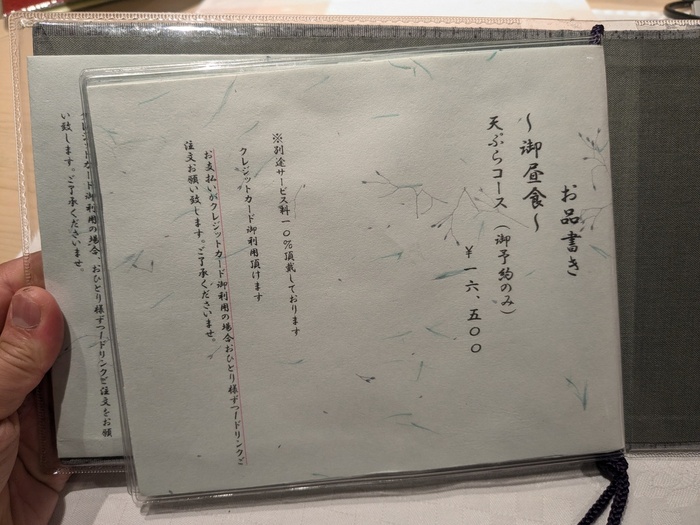 お品書き
～御昼食～
天ぷらコース（御予約のみ）
￥一六、五〇〇
※別途サービス料一〇％頂戴しております
クレジットカード御利用頂けます
お支払いがクレジットカード御利用の場合おひとり様ずつ1ドリンクご
注文お願い致します。ご了承くださいませ。
クレジットカード御利用の場合、おひとり様ずつ1ドリンクご注文をお願
い致します。ご了承くださいませ。